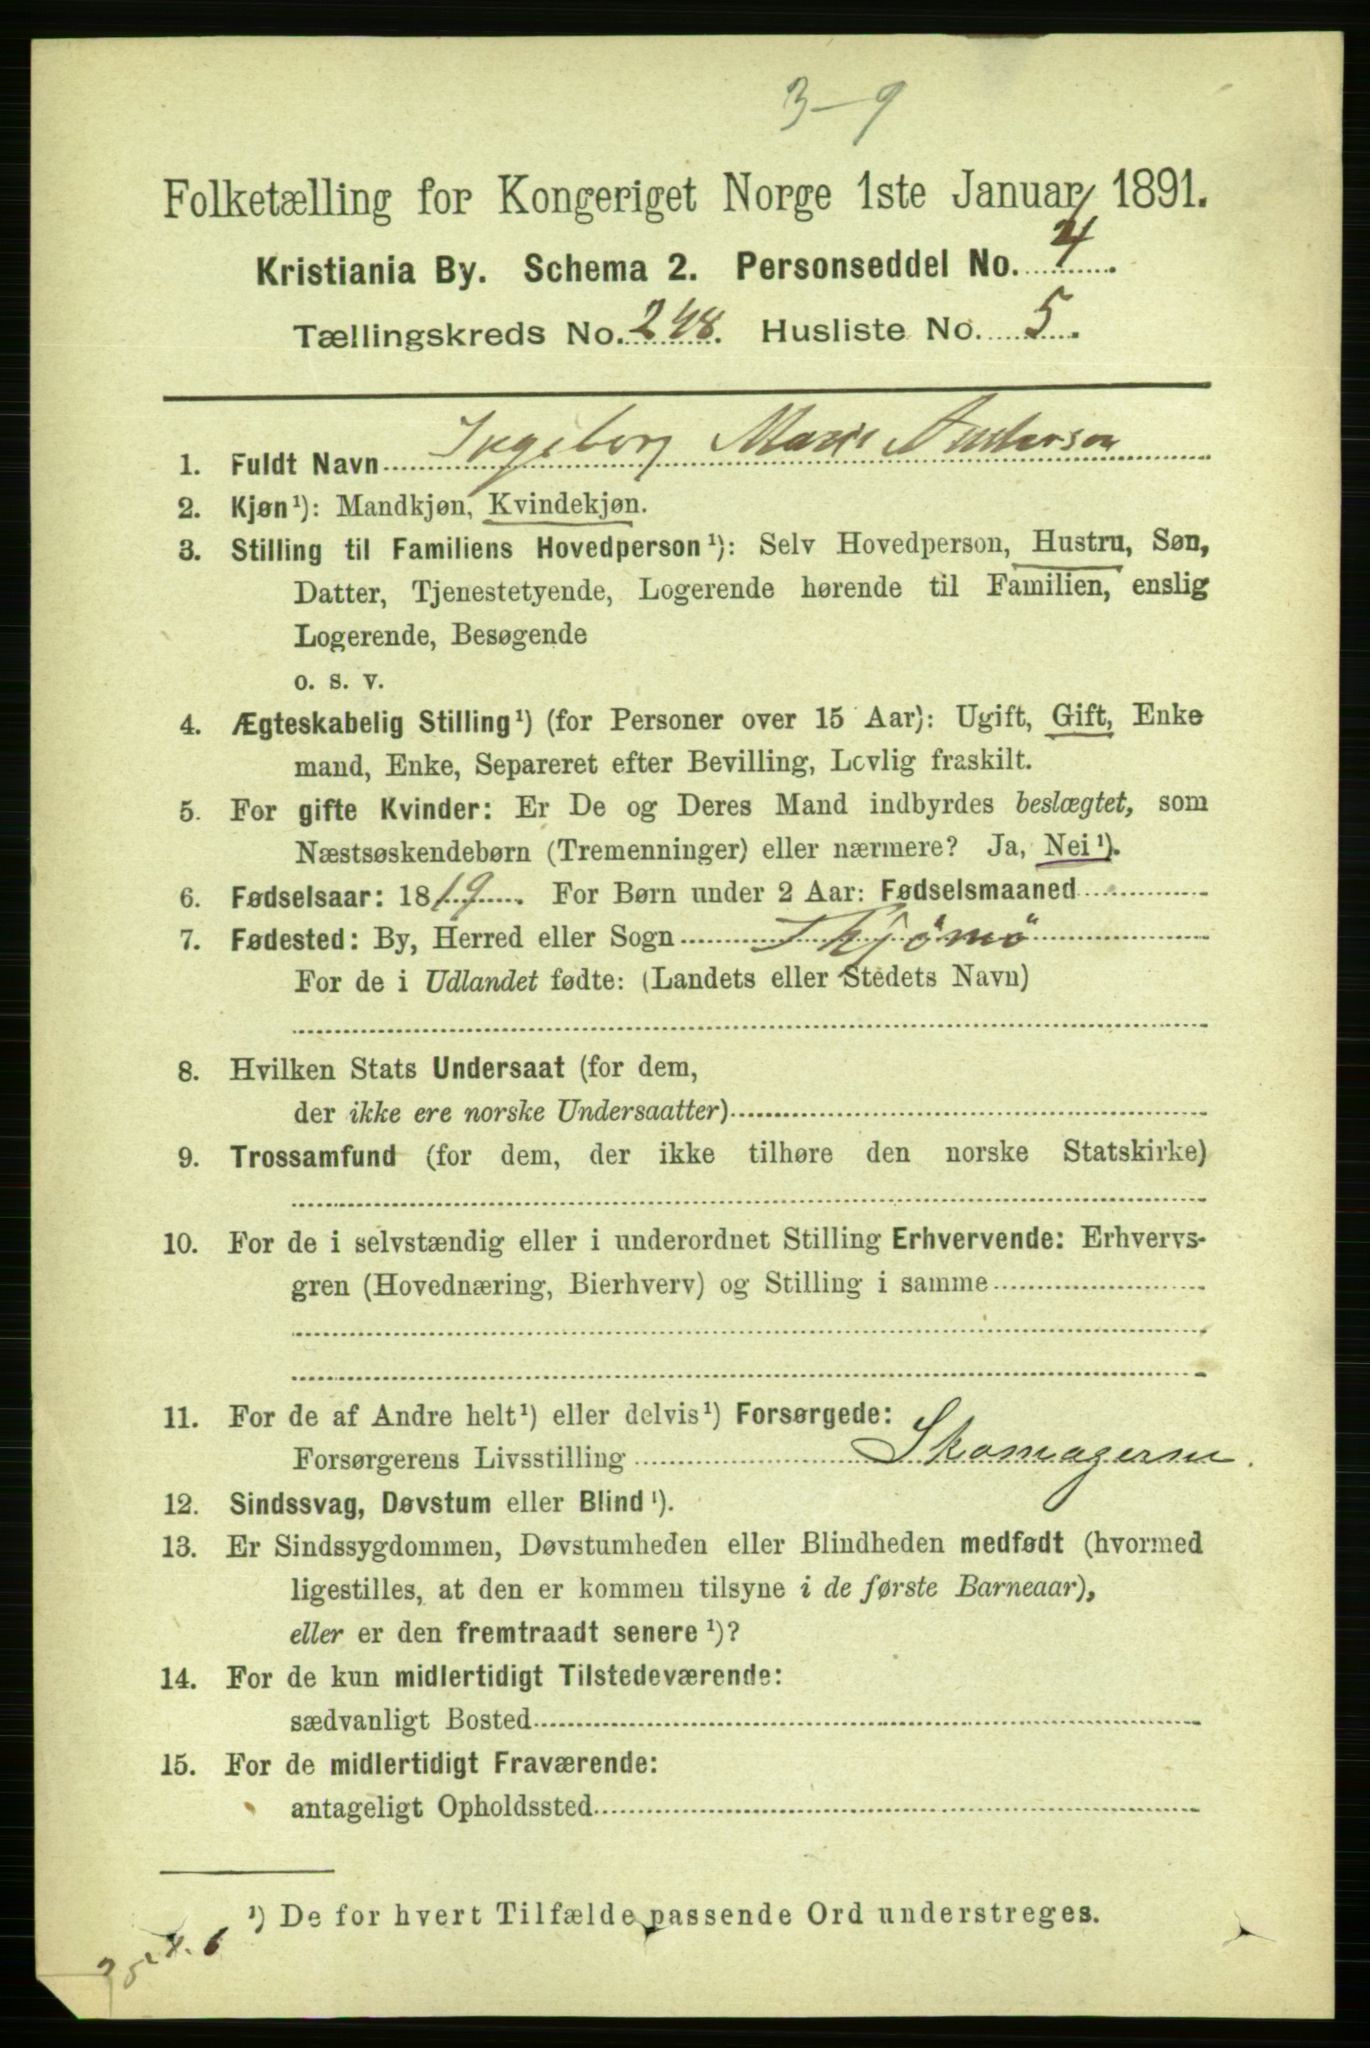 3-9
Folketælling for Kongeriget Norge 1ste Januar 1891.
Kristiania By. Schema 2. Personseddel No. 4.
Tællingskreds No. 248. Husliste No. 5.
1. Fuldt Navn Ingeborg Marie Andersen
2. Kjøn¹): Mandkjøn, Kvindekjøn.
3. Stilling til Familiens Hovedperson¹): Selv Hovedperson, Hustru, Søn,
Datter, Tjenestetyende, Logerende hørende til Familien, enslig
Logerende, Besøgende
o. s. v.
4. Ægteskabelig Stilling¹) (for Personer over 15 Aar): Ugift, Gift, Enke
mand, Enke, Separeret efter Bevilling, Lovlig fraskilt.
5. For gifte Kvinder: Er De og Deres Mand indbyrdes beslægtet, som
Næstsøskendebørn (Tremenninger) eller nærmere? Ja, Nei¹).
6. Fødselsaar: 1819. For Børn under 2 Aar: Fødselsmaaned
7. Fødested: By, Herred eller Sogn Tkjömö
For de i Udlandet fødte: (Landets eller Stedets Navn)
8. Hvilken Stats Undersaat (for dem,
der ikke ere norske Undersaatter)
9. Trossamfund (for dem, der ikke tilhøre den norske Statskirke)
10. For de i selvstændig eller i underordnet Stilling Erhvervende: Erhvervs-
gren (Hovednæring, Bierhverv) og Stilling i samme
11. For de af Andre helt¹) eller delvis¹) Forsørgede:
Forsørgerens Livsstilling Skomagersv.
12. Sindssvag, Døvstum eller Blind¹).
13. Er Sindssygdommen, Døvstumheden eller Blindheden medfødt (hvormed
ligestilles, at den er kommen tilsyne i de første Barneaar),
eller er den fremtraadt senere¹)?
14. For de kun midlertidigt Tilstedeværende:
sædvanligt Bosted
15. For de midlertidigt Fraværende:
antageligt Opholdssted
¹) De for hvert Tilfælde passende Ord understreges.